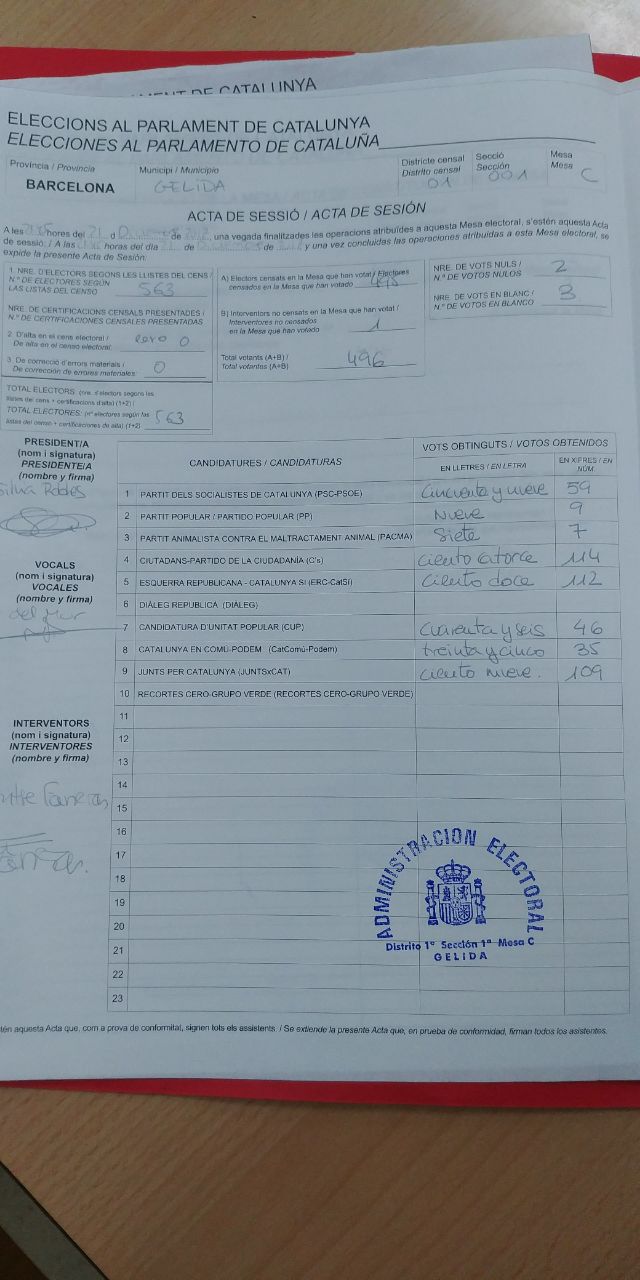 MENT DE CATALUNYA
ELECCIONS AL PARLAMENT DE CATALUNYA
ELECCIONES AL PARLAMENTO DE CATALUÑA
Província / Provincia
BARCELONA
Municipi / Municipio
GELIDA
Districte censal
Distrito censal
01
Secció
Sección
001
Mesa
Mesa
C
ACTA DE SESSIÓ / ACTA DE SESIÓN
A les hores del 21 d de, una vegada finalitzades les operacions atribuïdes a aquesta Mesa electoral, s'estén aquesta Acta
de sessió: / A las horas del día de de y una vez concluidas las operaciones atribuidas a esta Mesa electoral, se
expide la presente Acta de Sesión:
1. NRE. D'ELECTORS SEGONS LES LLISTES DEL CENS /
N.º DE ELECTORES SEGÚN
LAS LISTAS DEL CENSO 563
NRE. DE CERTIFICACIONS CENSALS PRESENTADES /
N.º DE CERTIFICACIONES CENSALES PRESENTADAS
2. D'alta en el cens electoral /
De alta en el censo electoral: cero 0
3. De correcció d'errors materials /
De corrección de errores materiales: 0
TOTAL ELECTORS: (nre. d'electors segons les
llistes del cens + certificacions d'alta) (1+2) /
TOTAL ELECTORES: (nº electores según las
listas del censo + certificaciones de alta) (1+2) 563
A) Electors censats en la Mesa que han votat / Electores
censados en la Mesa que han votado 495
B) Interventors no censats en la Mesa que han votat /
Interventores no censados
en la Mesa que han votado 1
Total votants (A+B) /
Total votantes (A+B) 496
NRE. DE VOTS NULS /
N.º DE VOTOS NULOS 2
NRE. DE VOTS EN BLANC /
N.º DE VOTOS EN BLANCO 3
PRESIDENT/A
(nom i signatura)
PRESIDENTE/A
(nombre y firma)
VOCALS
(nom i signatura)
VOCALES
(nombre y firma)
del Mar
INTERVENTORS
(nom i signatura)
INTERVENTORES
(nombre y firma)
CANDIDATURES / CANDIDATURAS
VOTS OBTINGUTS / VOTOS OBTENIDOS
EN LLETRES / EN LETRA
EN XIFRES / EN NÚM.
1 PARTIT DELS SOCIALISTES DE CATALUNYA (PSC-PSOE) Cincuenta y nueve 59
2 PARTIT POPULAR / PARTIDO POPULAR (PP) Nueve 9
3 PARTIT ANIMALISTA CONTRA EL MALTRACTAMENT ANIMAL (PACMA) Siete 7
4 CIUTADANS-PARTIDO DE LA CIUDADANÍA (C's) ciento catorce 114
5 ESQUERRA REPUBLICANA - CATALUNYA SÍ (ERC-CatSí) ciento doce 112
6 DIÀLEG REPUBLICÀ (DIÀLEG)
7 CANDIDATURA D'UNITAT POPULAR (CUP) Cuarenta y seis 46
8 CATALUNYA EN COMÚ-PODEM (CatComú-Podem) treinta y cinco 35
9 JUNTS PER CATALUNYA (JUNTSxCAT) ciento nueve. 109
10 RECORTES CERO-GRUPO VERDE (RECORTES CERO-GRUPO VERDE)
11
12
13
14
15
16
17
18
19
20
21
22
23
ADMINISTRACION ELECTORAL
Distrito 1º Sección 1ª Mesa C
GELIDA
tén aquesta Acta que, com a prova de conformitat, signen tots els assistents. / Se extiende la presente Acta que, en prueba de conformidad, firman todos los asistentes.